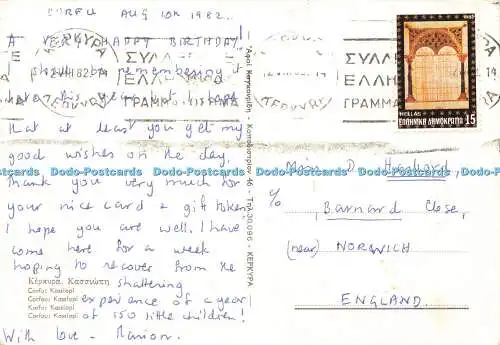 CORFU AUG 10th 1982.
A VERY HAPPY BIRTHDAY!
I shall be remembering it
here this year & hope
that at least you get my
good wishes on the day.
Thank you very much for
your nice card & gift token.
I hope you are well. I have
come here for a week
hoping to recover from the
shattering
experience of a year
of 150 little children!
With love - Marion.
Κέρκυρα. Κασσιώπη
Corfu: Kassiopi
Corfou: Kassiopi
Korfu: Kassiopi
Corfu: Kassiopi
ΚΕΡΚΥΡΑ
ΣΥΛΛ
ΕΛΛΗ
ΓΡΑΜΜΑ
46 - Τηλ. 30.096 - ΚΕΡΚΥΡΑ
HELLAS
ΕΛΛΗΝΙΚΗ ΔΗΜΟΚΡΑΤΙΑ 15
Miss D.
c/o
Barnard Close,
(near) NORWICH
ENGLAND.
Dodo-Postcards Dodo-Postcards Dodo-Postcards Dodo-Postcards